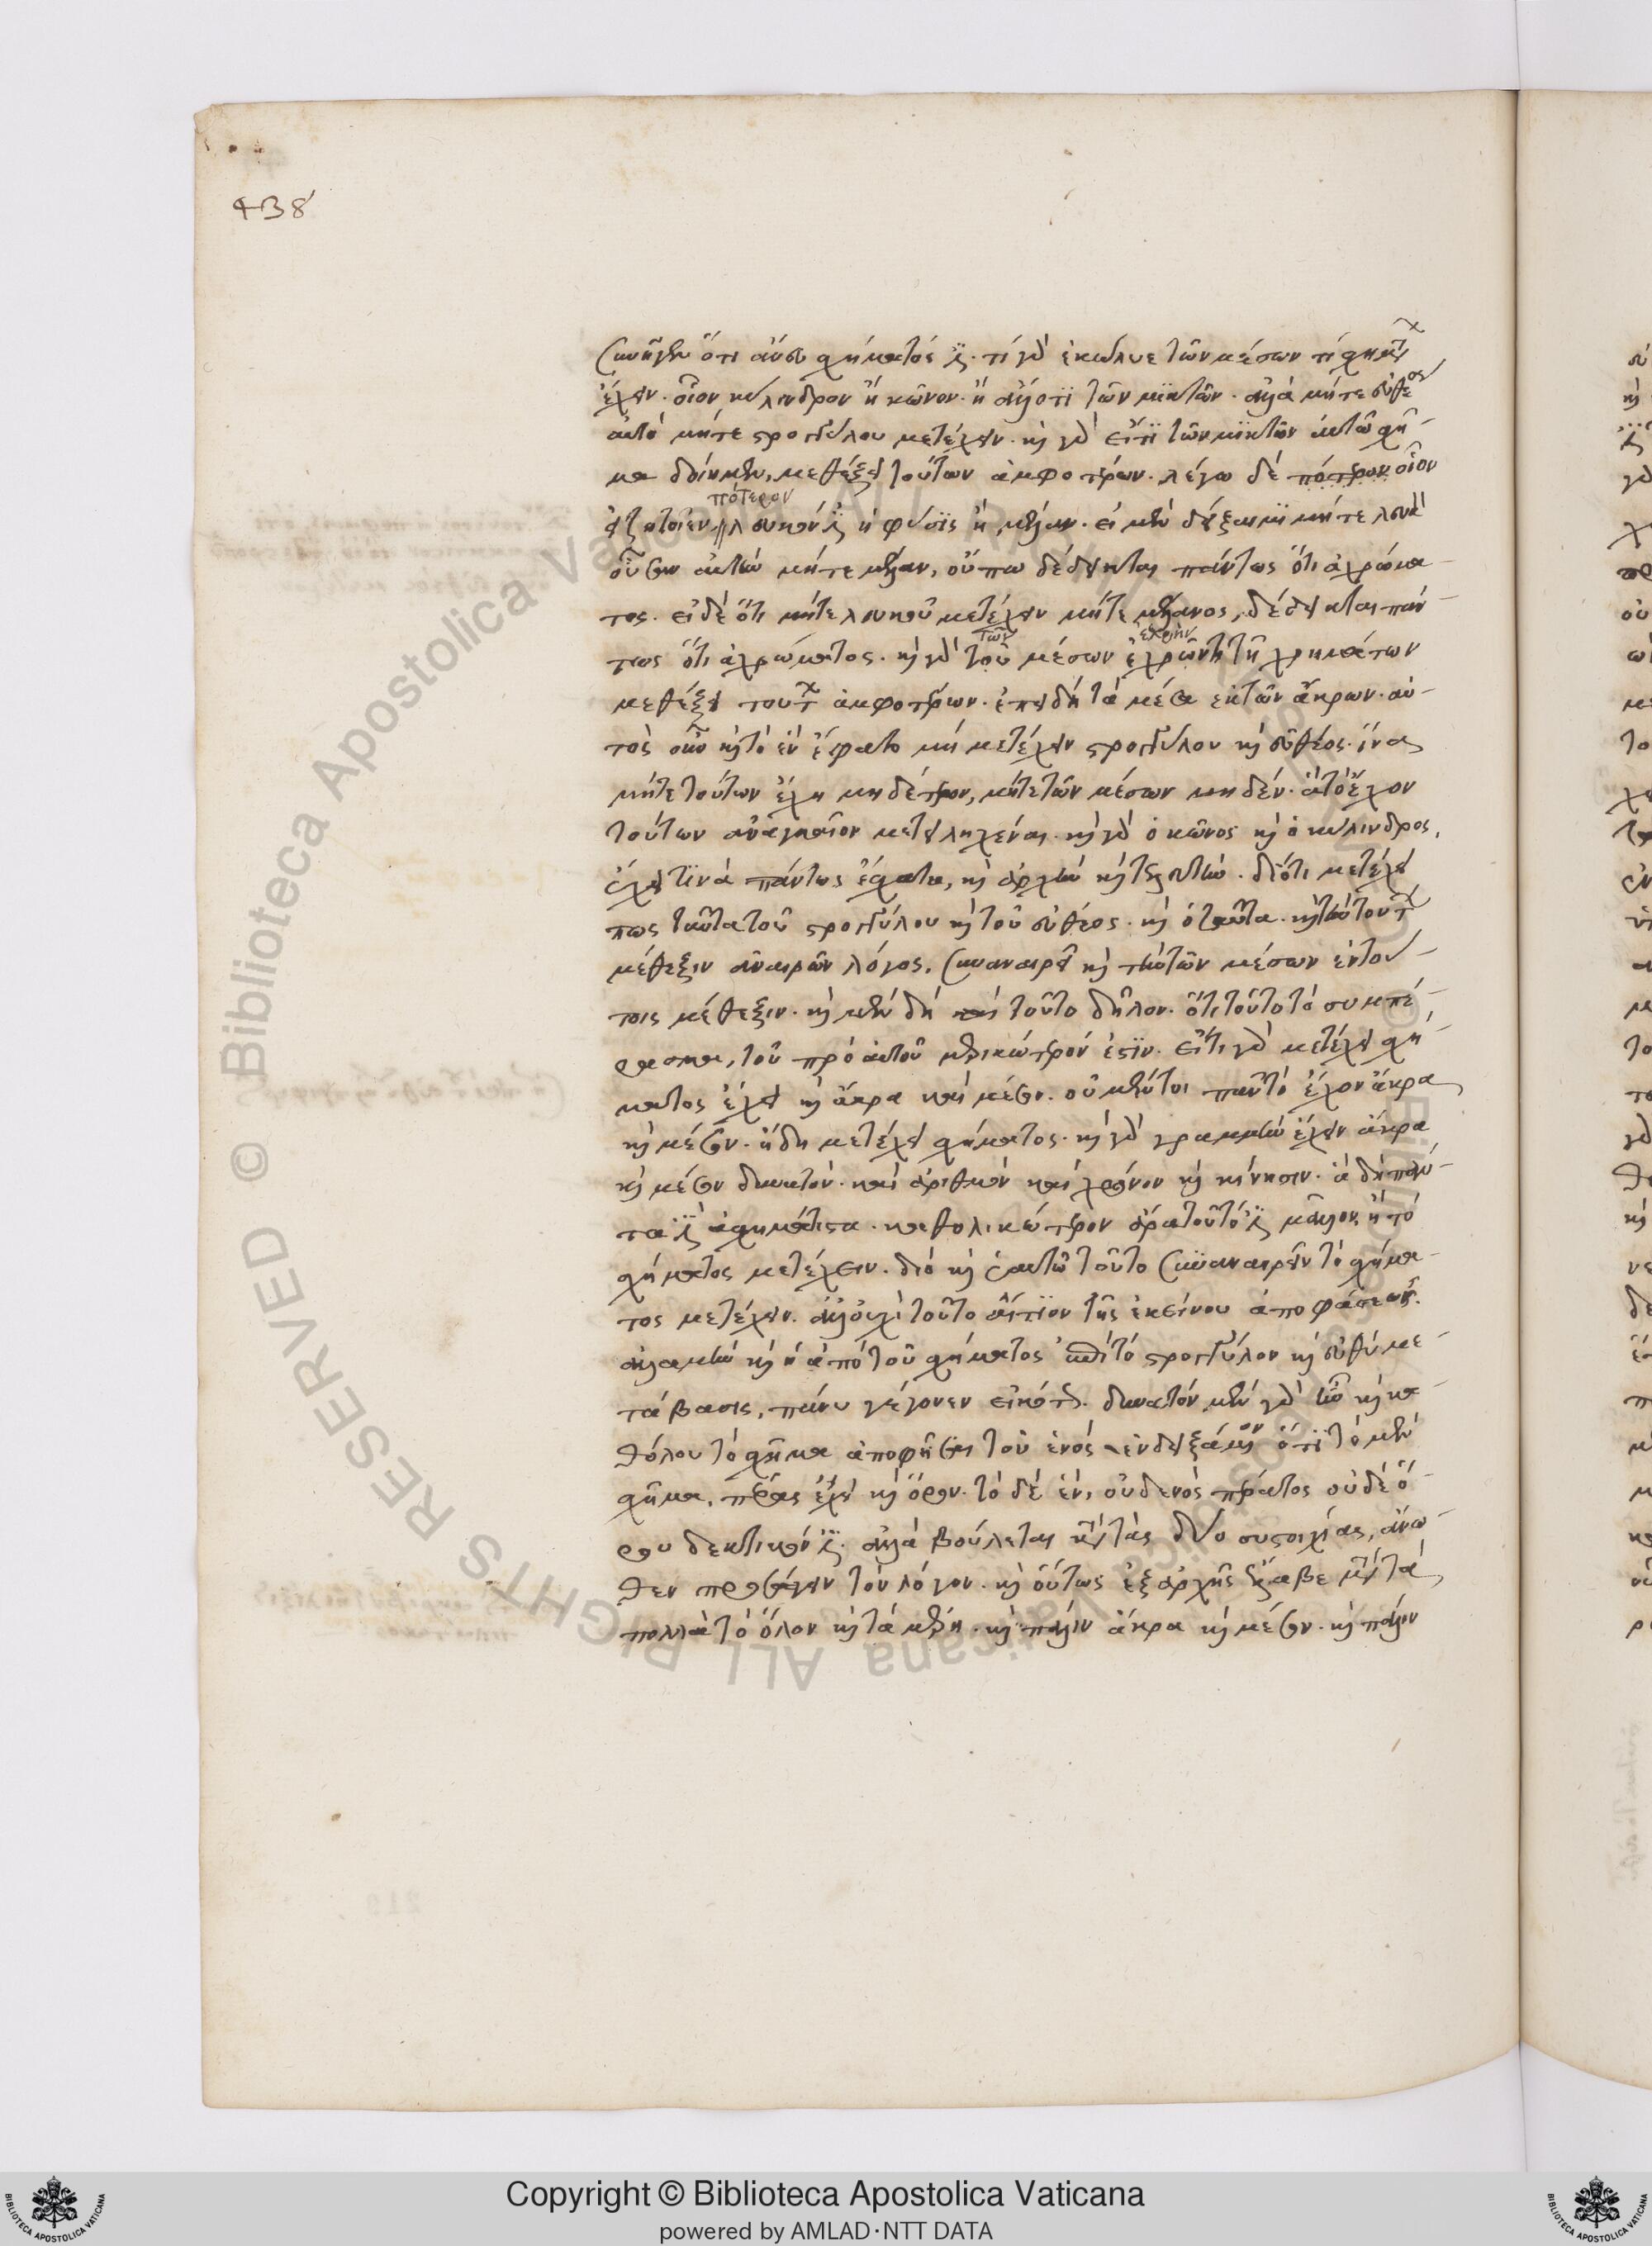 438
συνῆγεν ὅτι ἄνευ σχήματός ἐστι. τί γὰρ ἐκώλυε τῶν μέσων τι σχημάτων
ἔχειν. οἷον κύλινδρον ἢ κῶνον. ἢ ἄλλο τι τῶν μικτῶν. ἀλλὰ μήτε εὐθέος
αὐτὸ μήτε στρογγύλου μετέχειν. καὶ γὰρ εἴ τι τῶν μικτῶν αὐτῷ σχῆ-
μα δοίημεν, μεθέξει τούτων ἀμφοτέρων. λέγω δὲ πότερον οἷον
πότερον
εἰ ζητοῖεν λευκόν ἐστι ἡ φύσις ἢ μέλαν. εἰ μὲν δείξαιμι μήτε λευκὴν
οὖσαν αὐτὴν μήτε μέλαν, οὔπω δέδεικται πάντως ὅτι ἀχρώμα-
τος. εἰ δὲ ὅτι μήτε λευκοῦ μετέχειν μήτε μέλανος, δέδεικται πάν-
τῶν
τως ὅτι ἀχρώματος. καὶ γὰρ τοῦ μέσων χρημάτων
μεθέξει τούτων ἀμφοτέρων. ἐπειδὴ τὰ μέσα ἐκ τῶν ἄκρων. αὐ-
τὸς οὖν καὶ τὸ ἓν ἔφατο μὴ μετέχειν στρογγύλου καὶ εὐθέος. ἵνα
μήτε τούτων ἔχῃ μηδέτερον, μήτε τῶν μέσων μηδέν. ἃ τὸ ἔχον
τούτων ἀναγκαῖον μετειληχέναι. καὶ γὰρ ὁ κῶνος καὶ ὁ κύλινδρος,
ἔχει τινὰ πάντως ἔσχατα, καὶ ἀρχὴν καὶ τελευτήν. διότι μετέχει
πως ταῦτα τοῦ στρογγύλου καὶ τοῦ εὐθέος. καὶ ὁ ταῦτα. καὶ τὴν τούτων
μέθεξιν ἀναιρῶν λόγος, συναναιρεῖ καὶ τὴν τῶν μέσων ἐν τού-
τοις μέθεξιν. καὶ μὲν δὴ καὶ τοῦτο δῆλον. ὅτι τοῦτο τὸ συμπέ-
ρασμα, τοῦ πρὸ αὐτοῦ μερικώτερόν ἐστιν. εἴ τι γὰρ μετέχει σχή-
ματος ἔχει καὶ ἄκρα καὶ μέσον. οὐ μέντοι πᾶν τὸ ἔχον ἄκρα
καὶ μέσον. ἤδη μετέχει σχήματος. καὶ γὰρ γραμμὴν ἔχειν ἄκρα
καὶ μέσον δυνατόν. καὶ ἀριθμὸν καὶ χρόνον καὶ κίνησιν. ἃ δὴ πάν-
τα ἐστὶ ἀσχημάτιστα. καθολικώτερον ἄρα τοῦτό ἐστι μᾶλλον, ἢ τὸ
σχήματος μετέχειν. διὸ καὶ ἑαυτῷ τοῦτο συναναιρεῖν τὸ σχήμα-
τος μετέχειν. ἀλλ' οὐχὶ τοῦτο αἴτιον τῆς ἐκείνου ἀποφάσεως.
ἀλλὰ μὴν καὶ ἡ ἀπὸ τοῦ σχήματος ἐπὶ τὸ στρογγύλον καὶ εὐθὺ με-
τάβασις, πάνυ γέγονεν εἰκότως. δυνατὸν μὲν γὰρ ἦν καὶ κα-
θόλου τὸ σχῆμα ἀποφῆσαι τοῦ ἑνός ἐνδειξάμενον ὅτι τὸ μὲν
σχῆμα, πέρας ἔχει καὶ ὅρον. τὸ δὲ ἕν, οὐδενὸς πέρατος οὐδὲ ὅ-
ρου δεκτικόν ἐστι. ἀλλὰ βούλεται κατὰ τὰς δύο συστοιχίας, ἄνω-
θεν προάγειν τὸν λόγον. καὶ οὕτως ἐξ ἀρχῆς ἔλαβε μετὰ τὰ
πολλὰ τὸ ὅλον καὶ τὰ μέρη. καὶ πάλιν ἄκρα καὶ μέσον. καὶ πάλιν
Copyright © Biblioteca Apostolica Vaticana
powered by AMLAD·NTT DATA